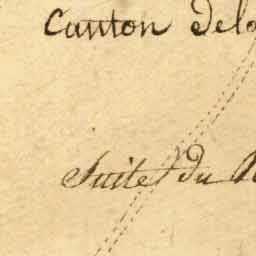 Canton de la
Suite du